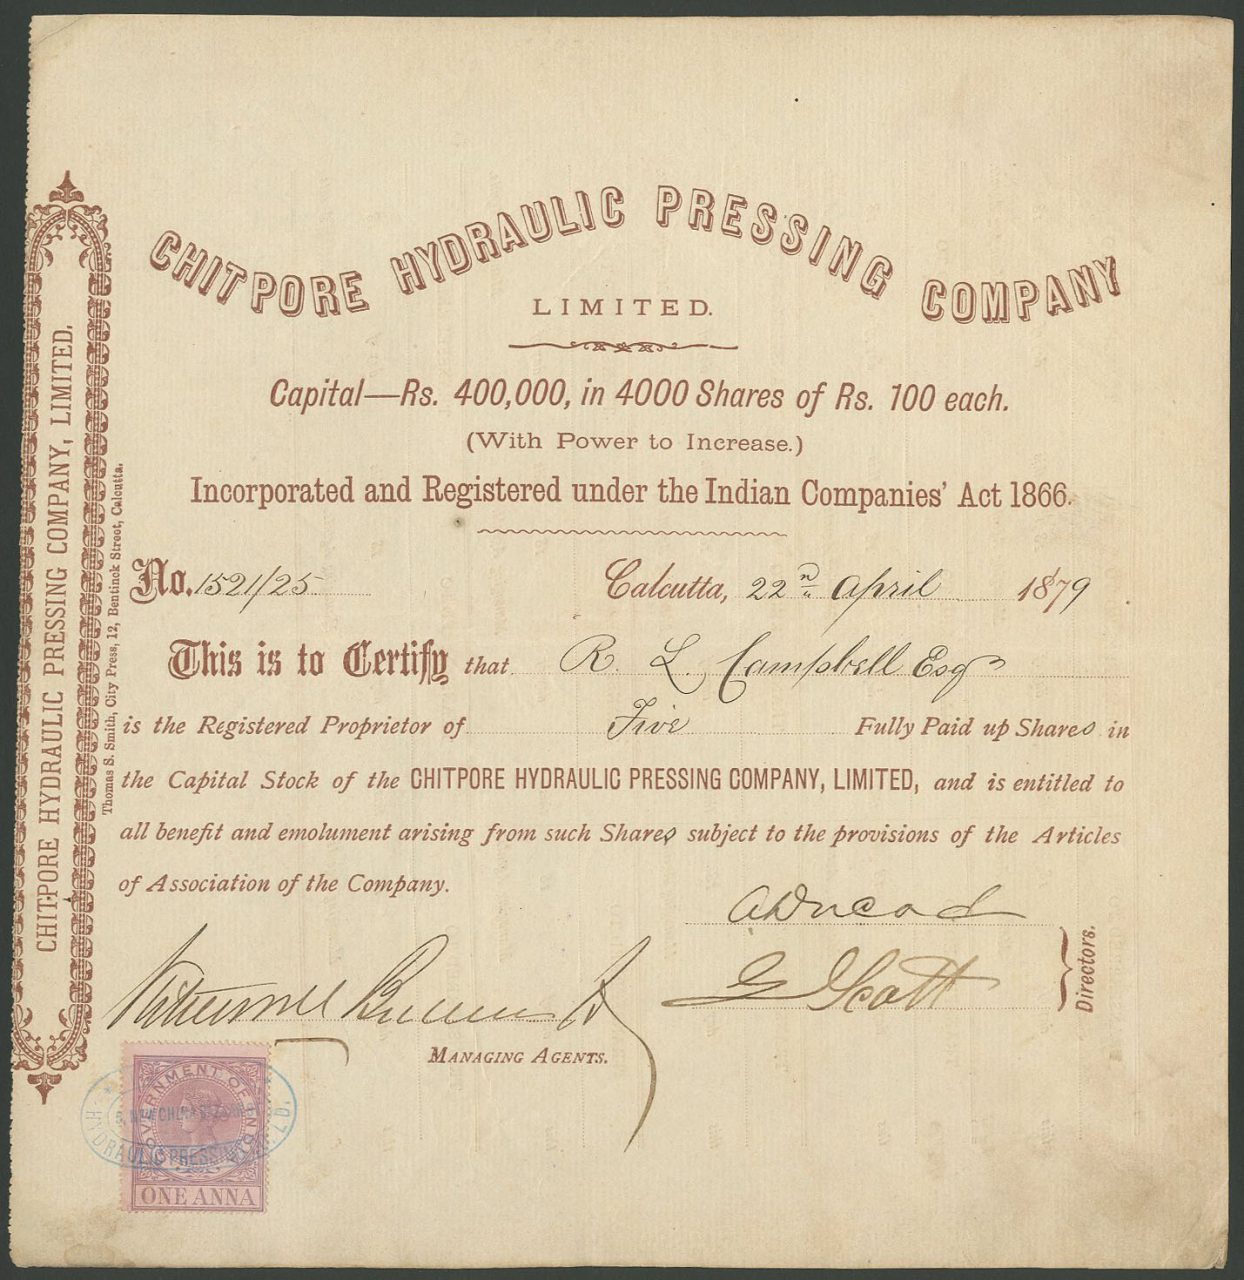 CHITPORE HYDRAULIC PRESSING COMPANY
LIMITED.
Capital—Rs. 400,000, in 4000 Shares of Rs. 100 each.
(With Power to Increase.)
Incorporated and Registered under the Indian Companies' Act 1866.
No. 1521/25 Calcutta, 22nd April 1879
This is to Certify that R. L. Campbell Esqr
is the Registered Proprietor of Five Fully Paid up Shares in
the Capital Stock of the CHITPORE HYDRAULIC PRESSING COMPANY, LIMITED, and is entitled to
all benefit and emolument arising from such Shares subject to the provisions of the Articles
of Association of the Company.
G Scott
Directors.
MANAGING AGENTS.
CHITPORE HYDRAULIC PRESSING COMPANY, LIMITED.
Thomas S. Smith, City Press, 12, Bentinck Street, Calcutta.
GOVERNMENT OF INDIA
ONE ANNA
HYDRAULIC PRESSING CO. LD.